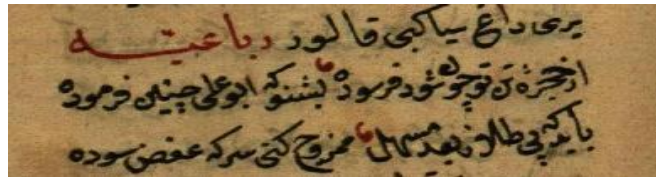 یری داغ سیاکبی قالور رباعیّه
از خجره تن تو چو شود فرسوده بشنو که ابو علی چنین فرموده
باید که پی طلا بعد مسهل ممزوج کنی سرکه عفص سوده